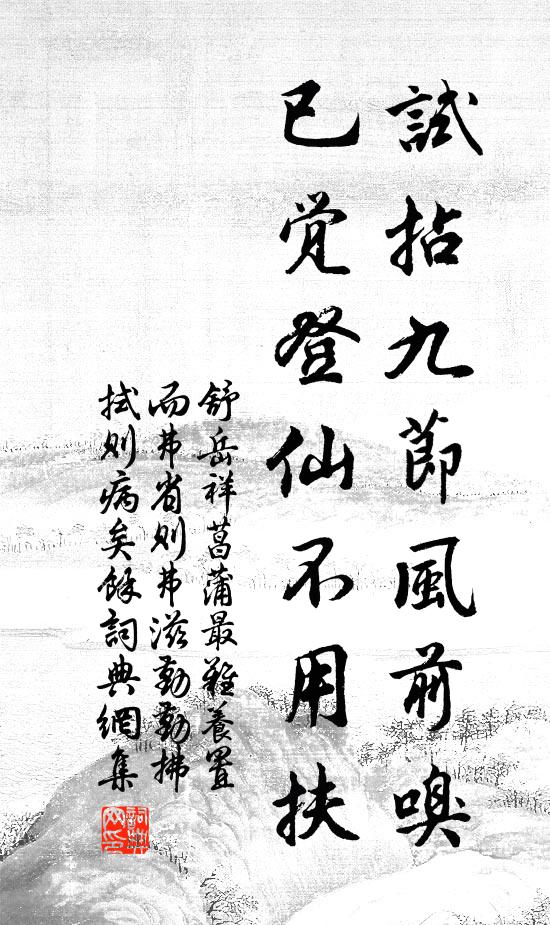 試拈九節風前嗅
已覺登仙不用扶
舒岳祥菖蒲最難養置
而弗省則弗滋勤勤拂
拭則病矣餘詞典網集